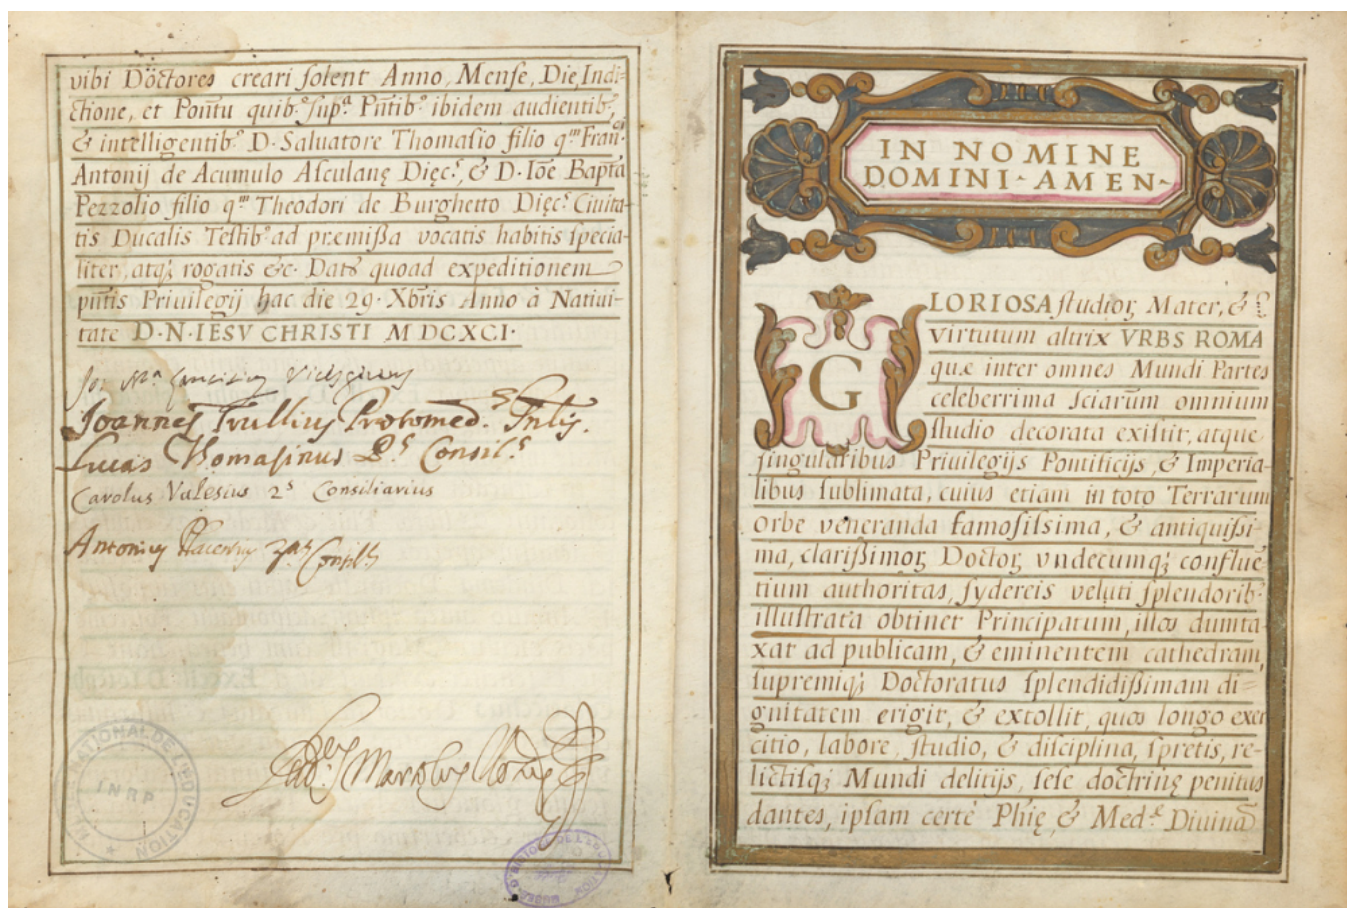 vibi Doctores creari solent Anno, Mense, Die, Indi=
ctione, et Pontu quib.⁹ supª Pñtib.⁹ ibidem audientib⁹,
& intelligentib⁹ D. Saluatore Thomasio filio qᵐ Franᶜⁱ
Antonij de Acumulo Asculanę Dięcˢ, & D. Ioẽ Bapta
Pezzolio filio qᵐ Theodori de Burghetto Dięcˢ Ciuita-
tis Ducalis Testib⁹ ad præmißa vocatis habitis specia-
liter, atq; rogatis &c. Dat̃ quoad expeditionem
pñtis Priuilegij hac die 29. Xbris Anno à Natiui-
tate D. N. IESV CHRISTI M DCXCI.
Joannes Trullius Protomed.ˢ
Lucas Thomasinus Pˢ Consilˢ
Carolus Valesius 2ˢ Consiliarius
Antonius
INRP
IN NOMINE
DOMINI~AMEN~
GLORIOSA studioꝝ Mater, &
virtutum altrix VRBS ROMA
quæ inter omnes Mundi Partes
celeberrima sciarũm omnium
studio decorata exisiit, atque
singularibus Priuilegijs Pontificijs, & Imperia-
libus sublimata, cuius etiam in toto Terrarum
orbe veneranda famosissima, & antiquissi-
ma, clarißimoꝝ Doctoꝝ vndecumq; confluẽ
tium authoritas, sydereis veluti splendorib⁹
illustrata obtinet Principatum, illos dumta-
xat ad publicam, & eminentem cathedram,
supremiq; Doctoratus splendidißimam di=
gnitatem erigit, & extollit, quos longo exer
citio, labore, studio, & disciplina, spretis, re-
lictisq; Mundi delitijs, sese doctrinę penitus
dantes, ipsam certè Phię, & Med.ᵉ Diuinã